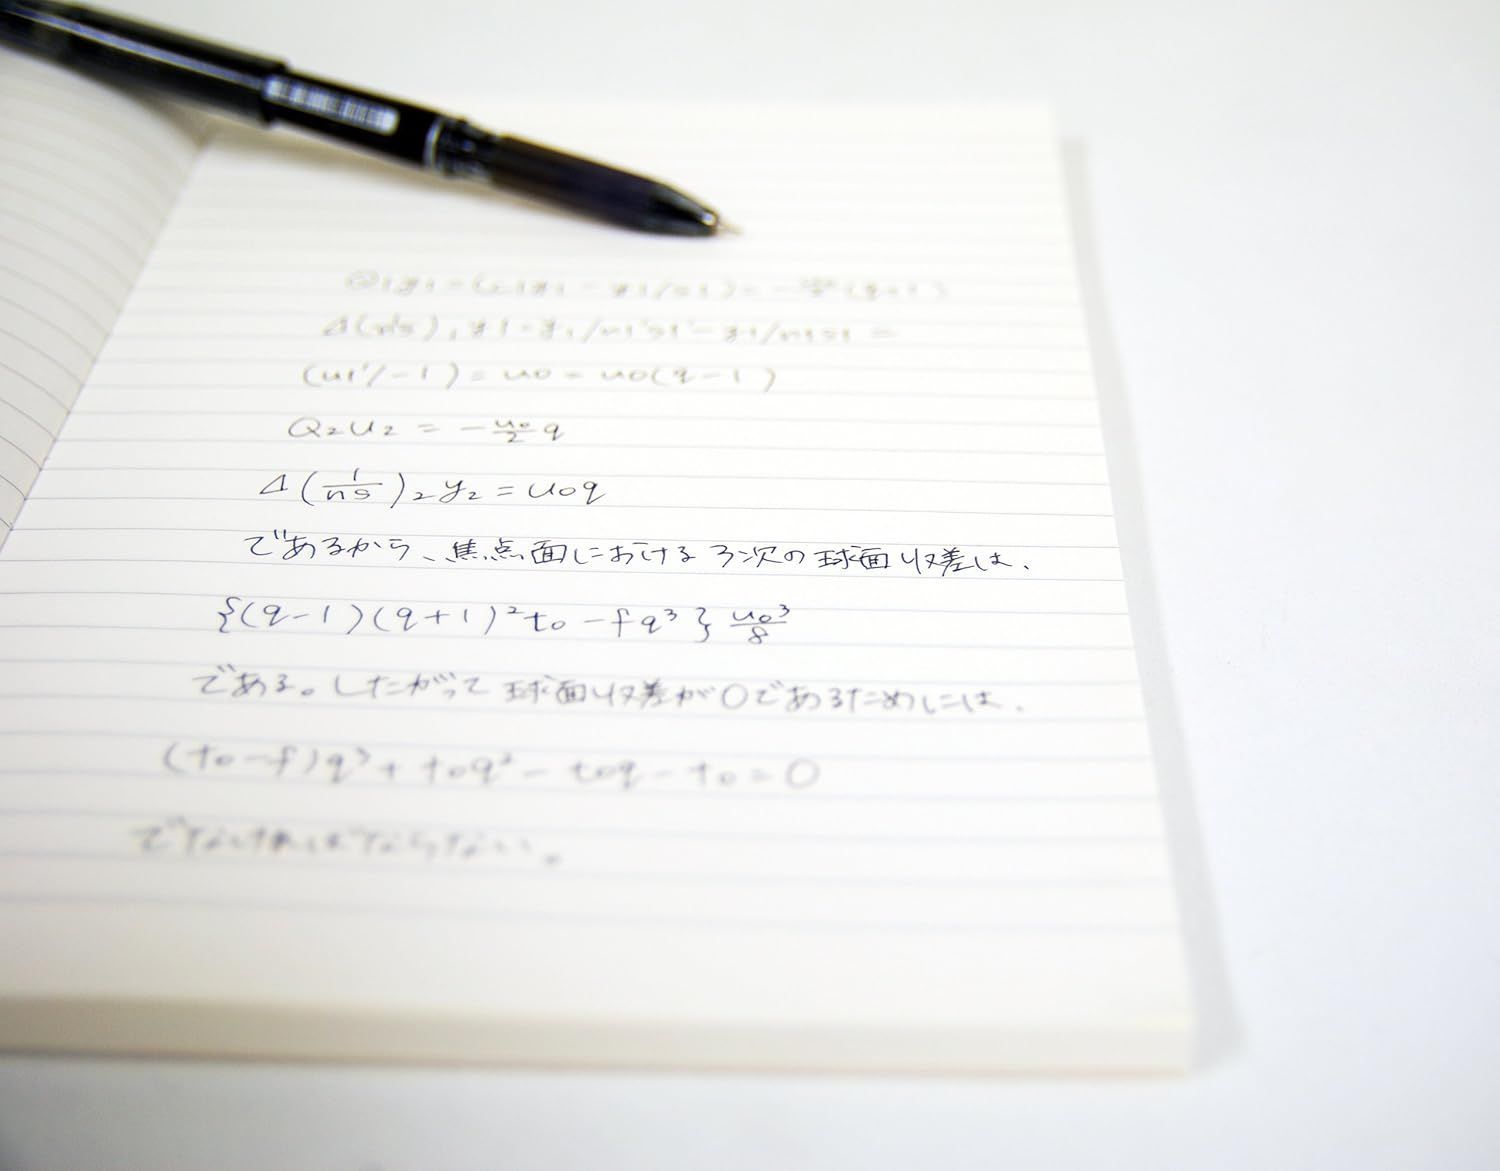 (u1'/-1) = u0 = u0(q-1)
Q₂u₂ = -u₀/2 q
Δ(1/ns)₂y₂ = u₀q
であるから、焦点面における3次の球面収差は、
{(q-1)(q+1)²t₀-fq³}u₀³/8
である。したがって球面収差が0であるためには、
(t₀-f)q³+t₀q²-t₀q-t₀=0
でなければならない。